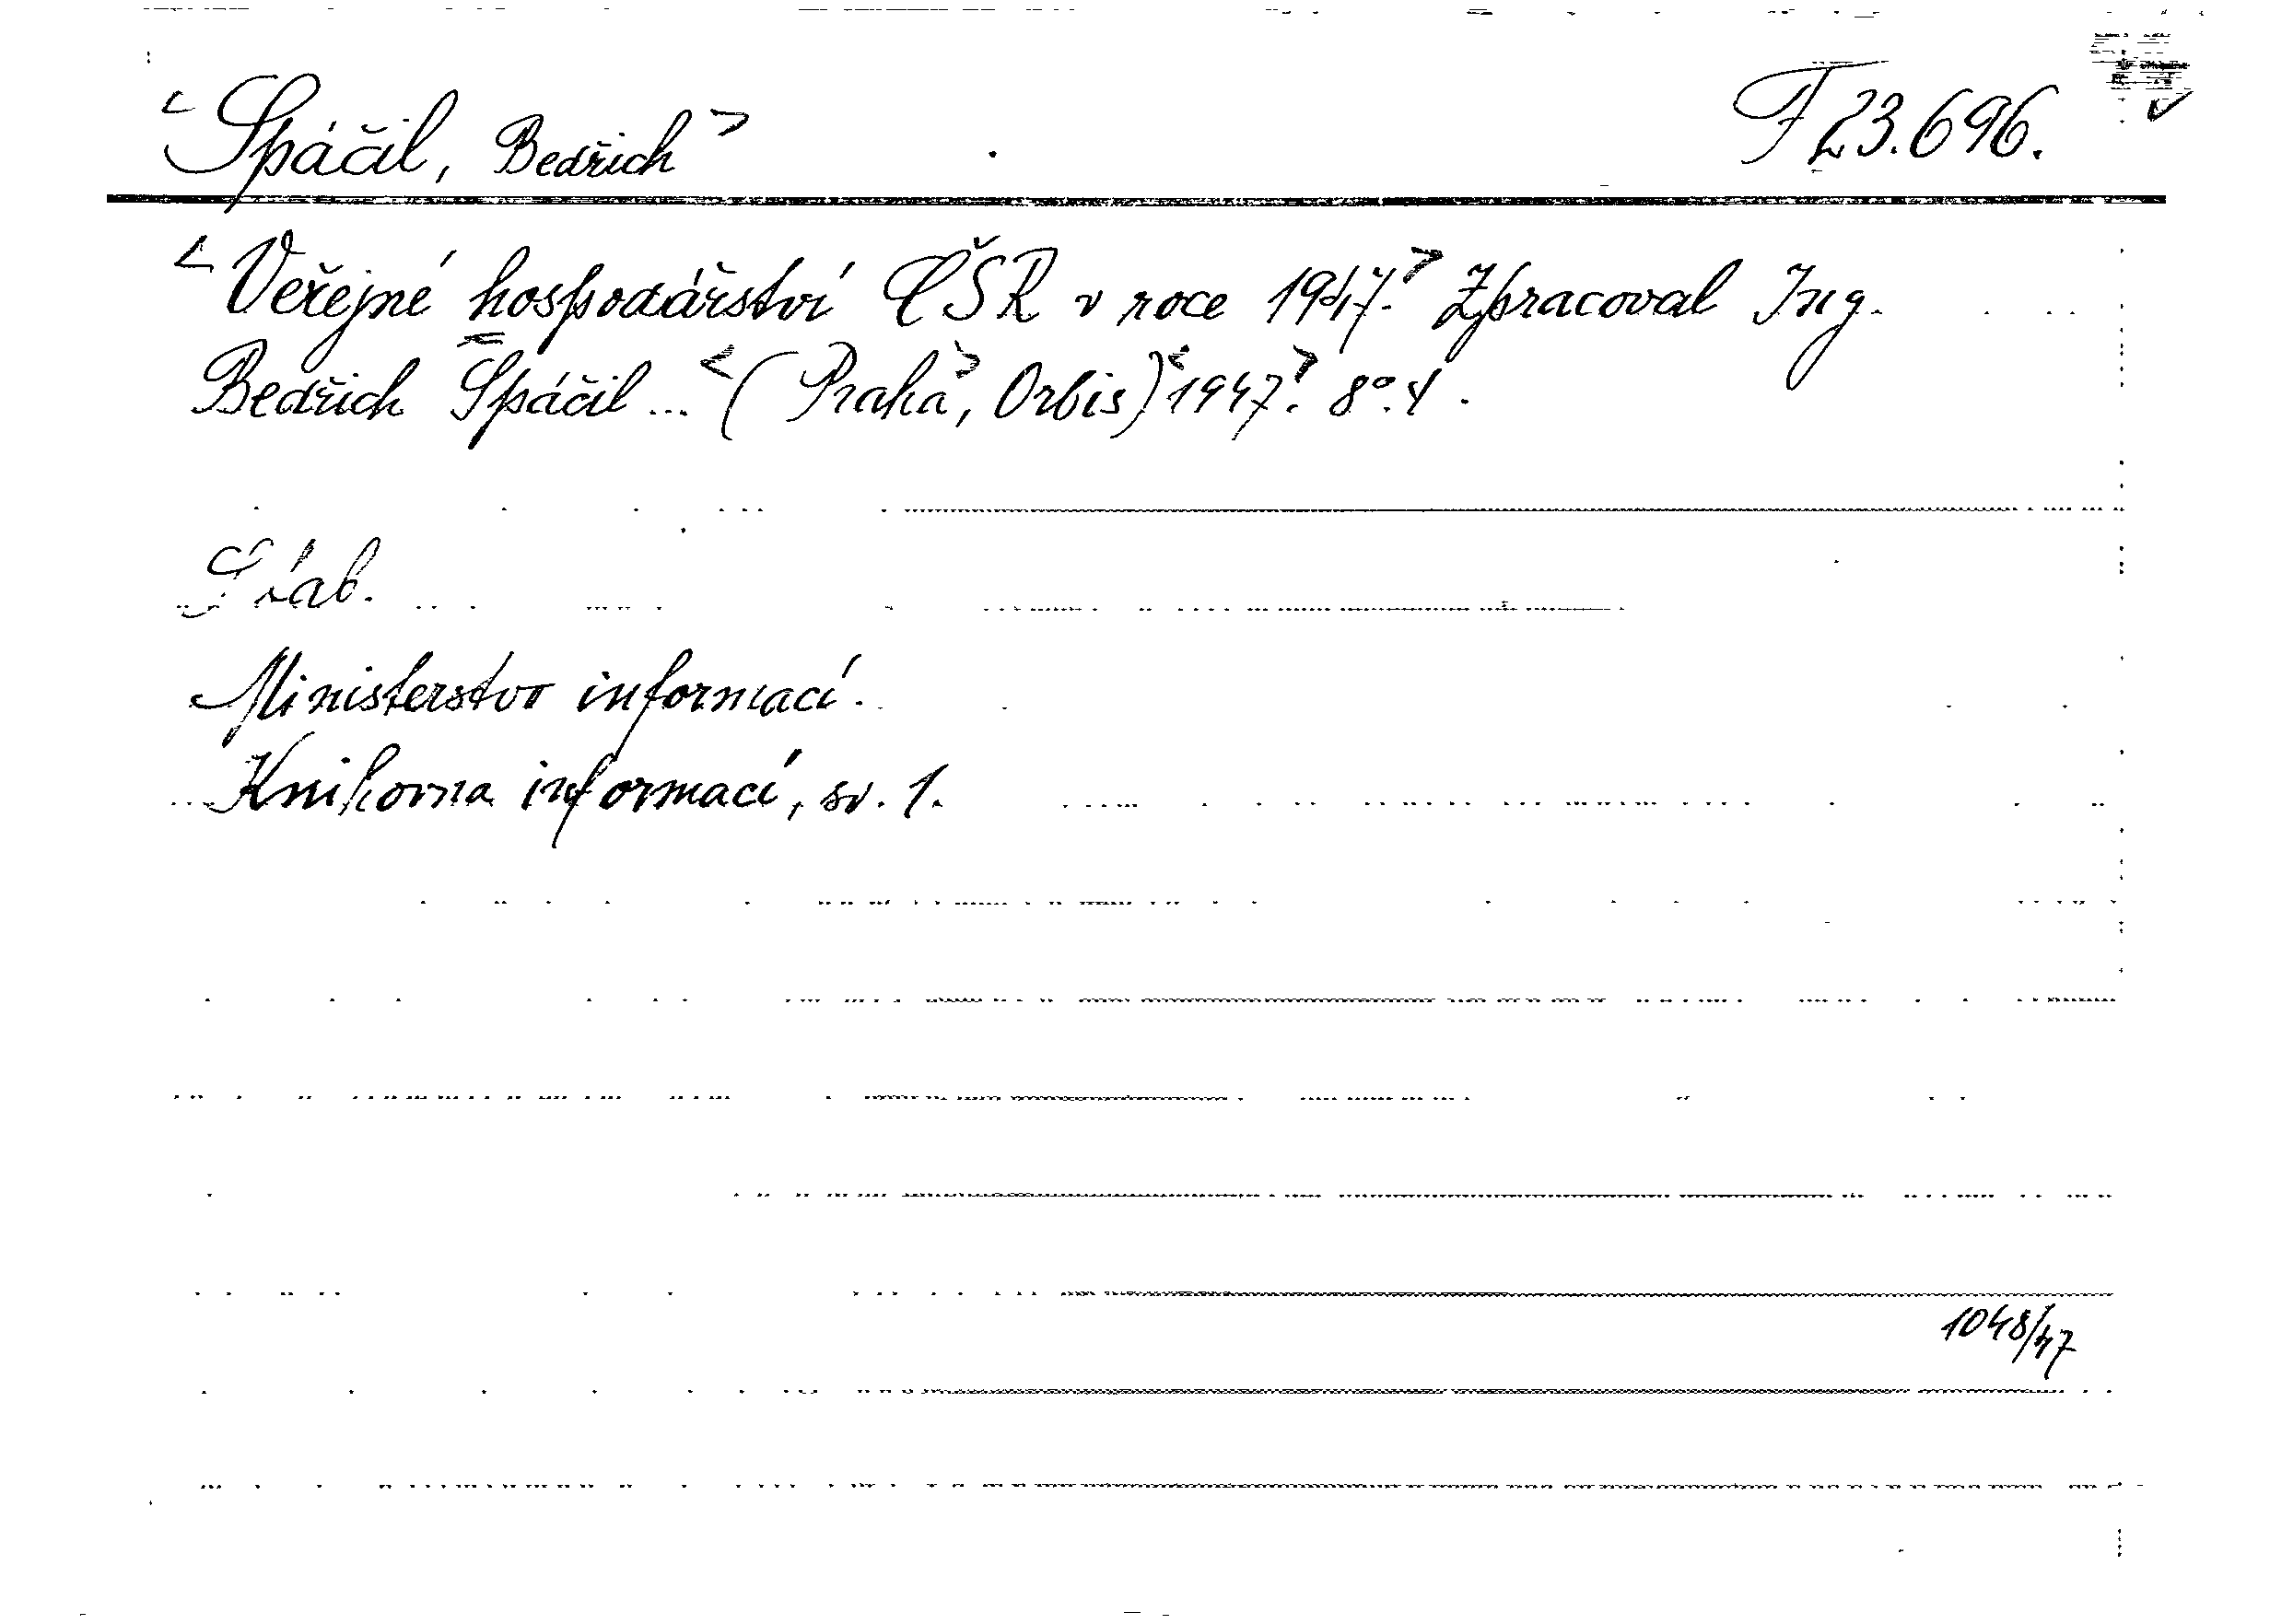 <Spáčil, Bedřich> F 23.696.
<Veřejné hospodářství ČSR v roce 1947.> Zpracoval Ing.
Bedřich Spáčil ... <(Praha>, Orbis)<1947>. 8°. 4.
Ministerstvo informací.
Knihovna informací, sv. 1.
1048/47